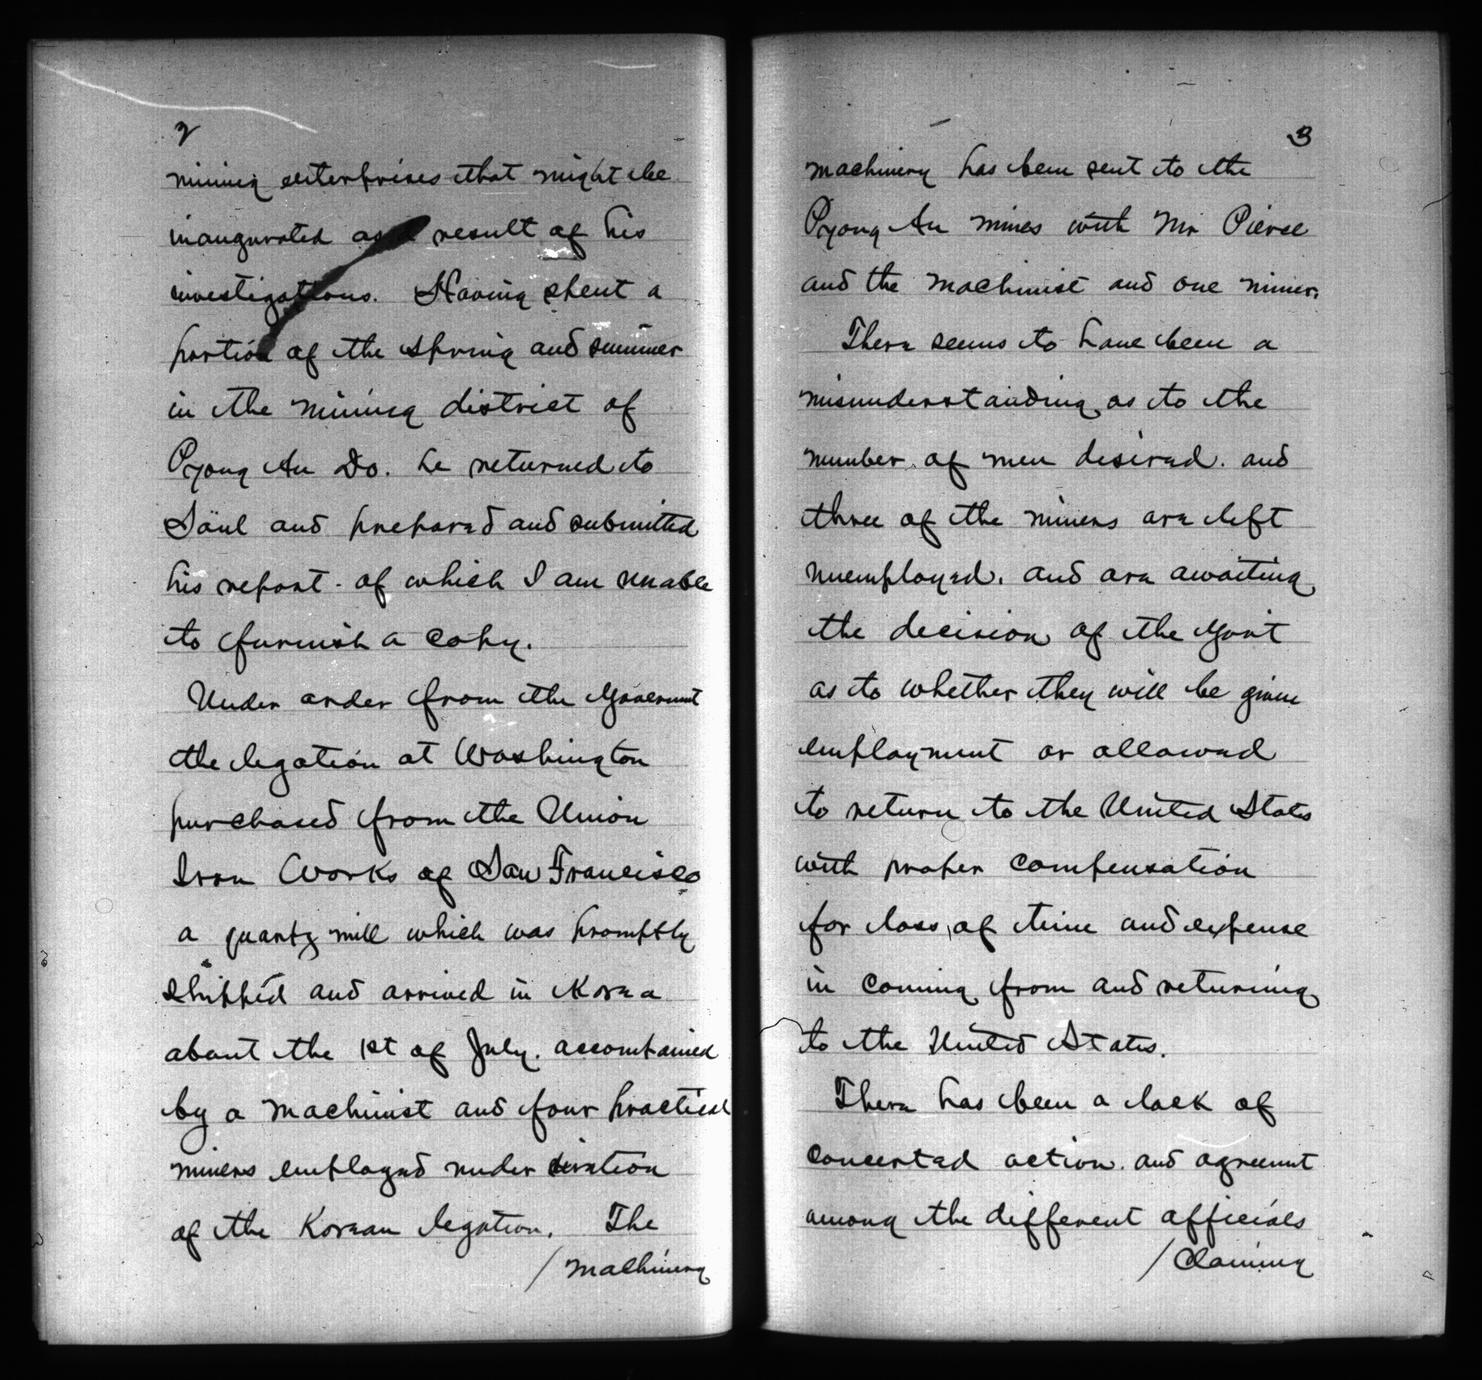 2
mining enterprises that might be
inaugurated as a result of his
investigations. Having spent a
portion of the spring and summer
in the mining district of
Pyong An Do. he returned to
Söul and prepared and submitted
his report - of which I am unable
to furnish a copy.
Under order from the Government
the legation at Washington
purchased from the Union
Iron Works of San Francisco
a quartz mill which was promptly
shipped and arrived in Korea
about the 1st of July. accompanied
by a machinist and four practical
miners employed under diration
of the Korean legation. The
/ machinery
3
machinery has been sent to the
Pyong An mines with Mr Pierce
and the machinist and one miner.
There seems to have been a
misunderstanding as to the
number of men desired. and
three of the miners are left
unemployed. and are awaiting
the decision of the Govt
as to whether they will be given
employment or allowed
to return to the United States
with proper compensation
for loss of time and expense
in coming from and returning
to the United States.
There has been a lack of
concerted action and agreemnt
among the different officials
/ claiming